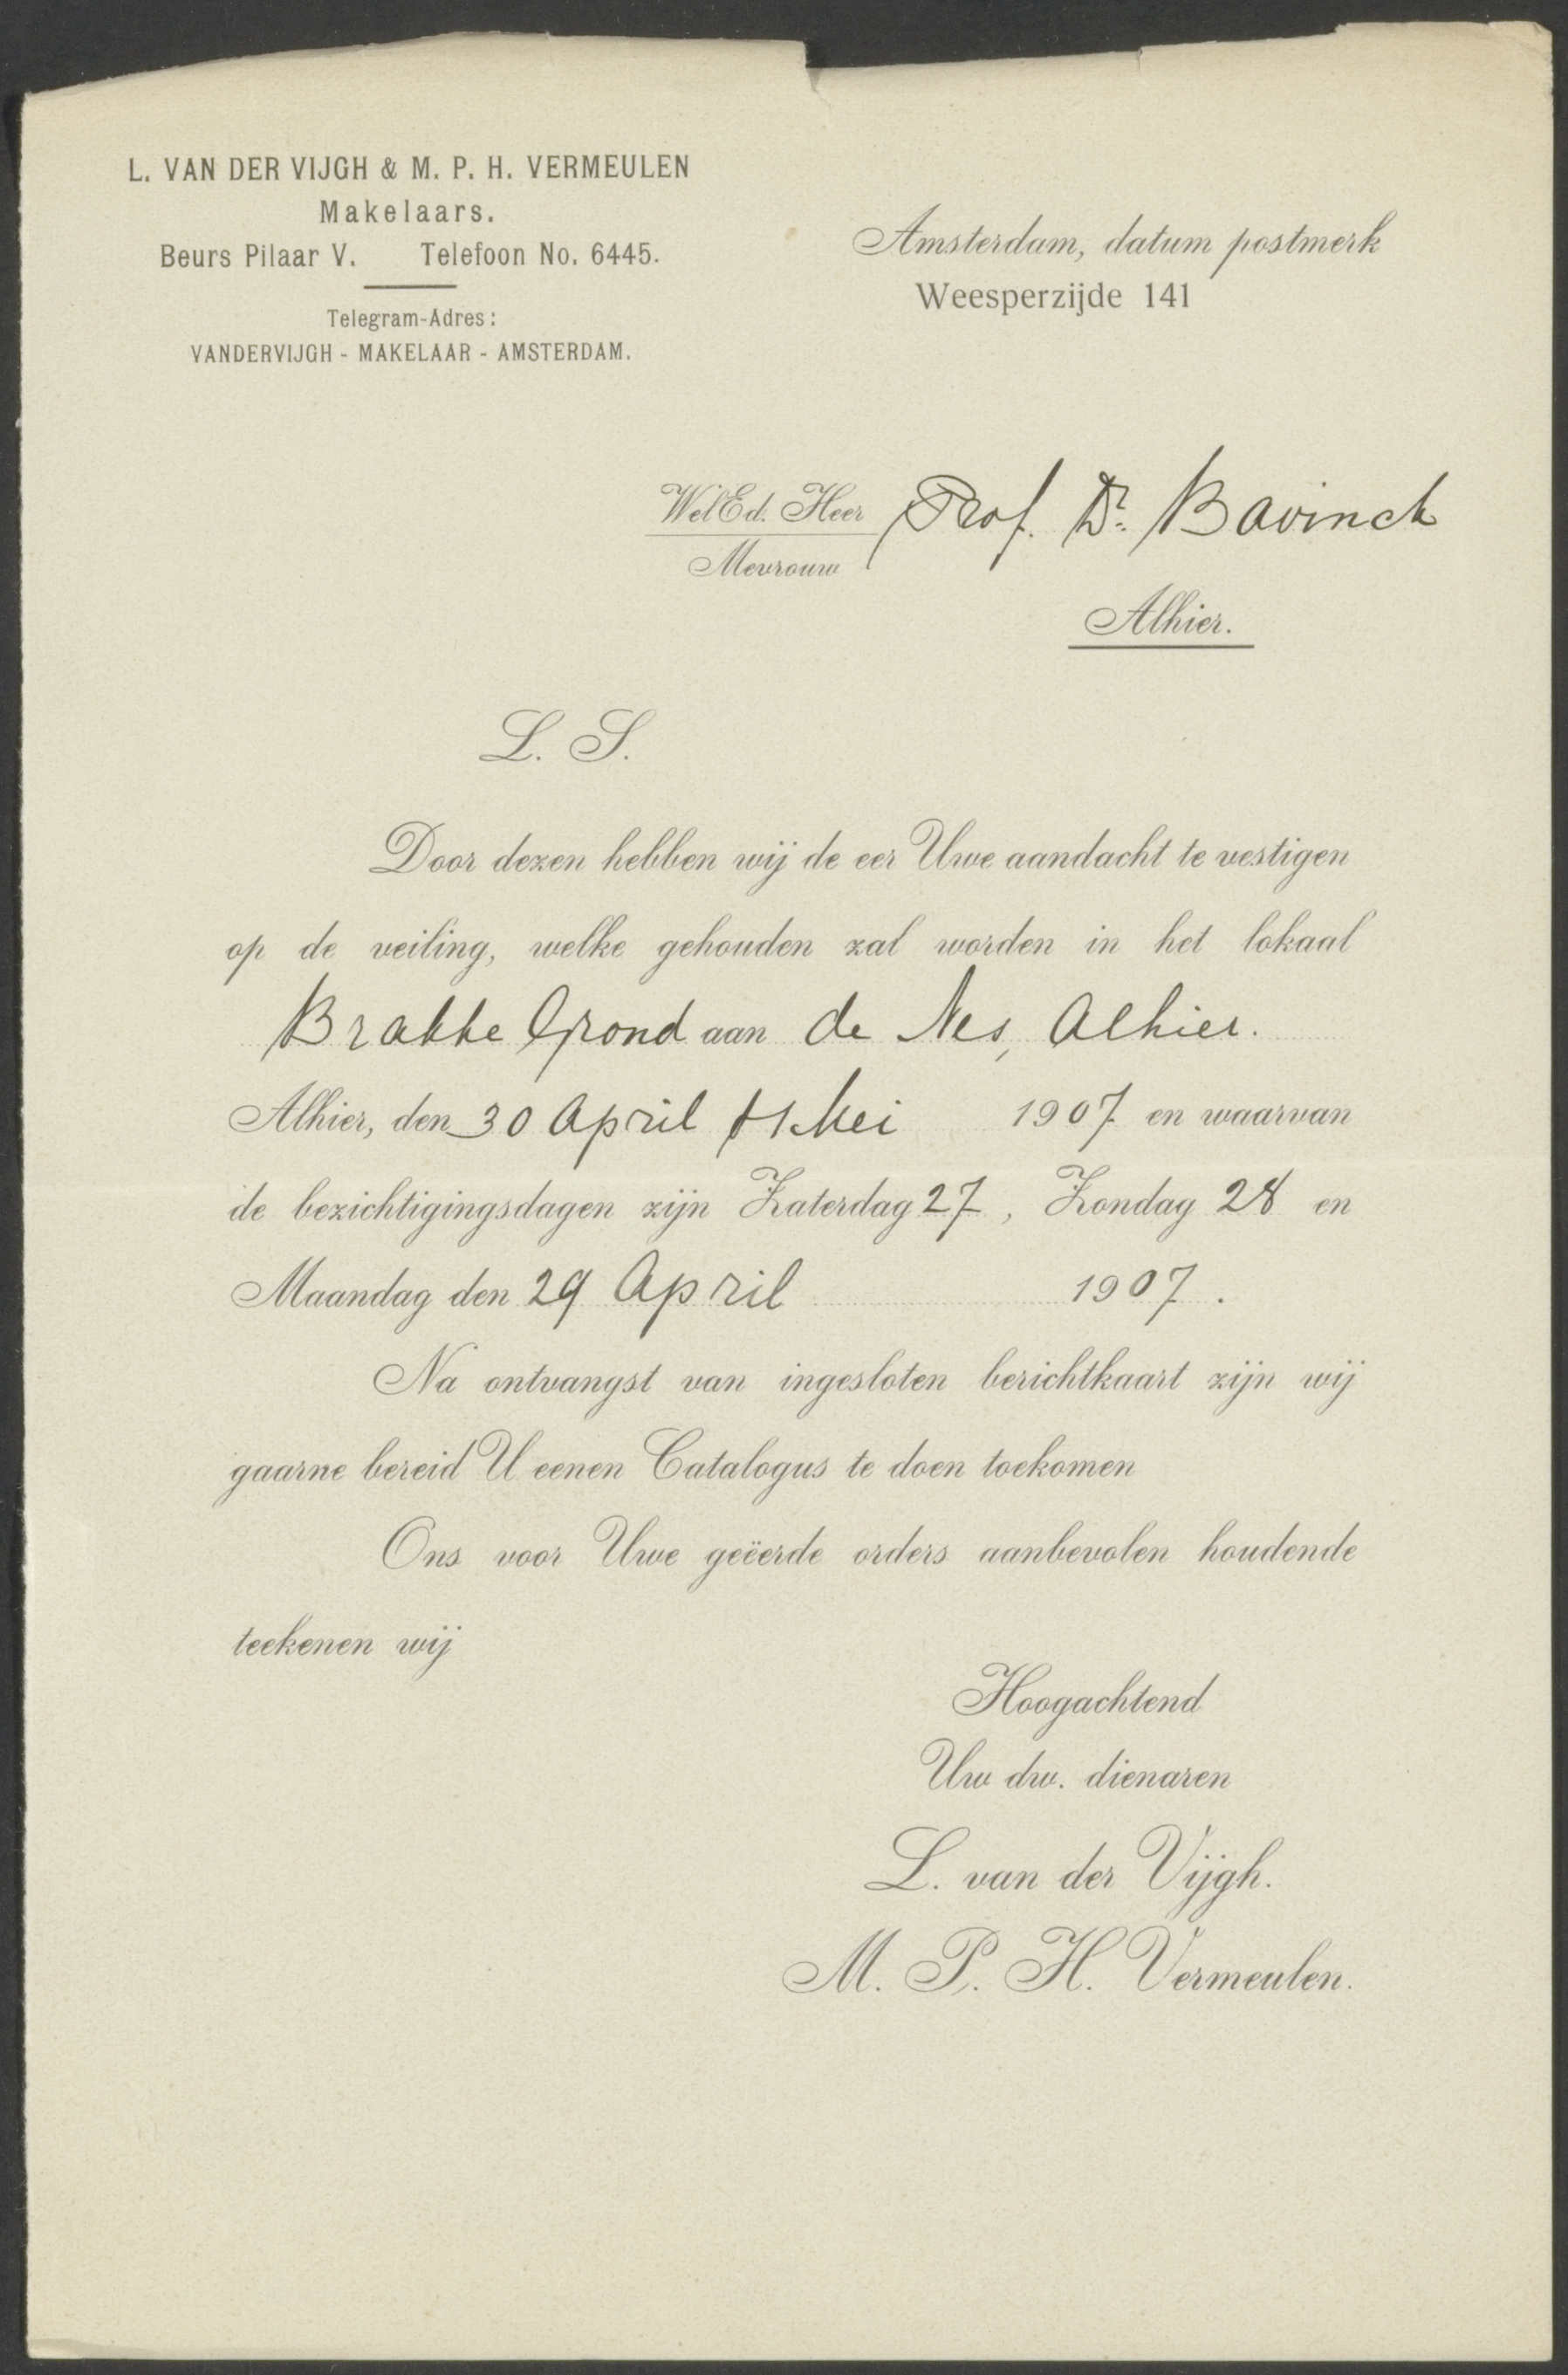 L. VAN DER VIJGH & M. P. H. VERMEULEN
Makelaars.
Beurs Pilaar V. Telefoon No. 6445.
Telegram-Adres:
VANDERVIJGH - MAKELAAR - AMSTERDAM.
Amsterdam, datum postmerk
Weesperzijde 141
WelEd. Heer Prof. Dr. Bavinck
Mevrouw
Alhier.
L. S.
Door dezen hebben wij de eer Uwe aandacht te vestigen
op de veiling, welke gehouden zal worden in het lokaal
Brakke Grond aan de Nes, Alhier.
Alhier, den 30 April & 1 Mei 1907 en waarvan
de bezichtigingsdagen zijn Zaterdag 27, Zondag 28 en
Maandag den 29 April 1907.
Na ontvangst van ingesloten berichtkaart zijn wij
gaarne bereid U eenen Catalogus te doen toekomen
Ons voor Uwe geëerde orders aanbevolen houdende
teekenen wij
Hoogachtend
Uw dw. dienaren
L. van der Vijgh.
M. P. H. Vermeulen.